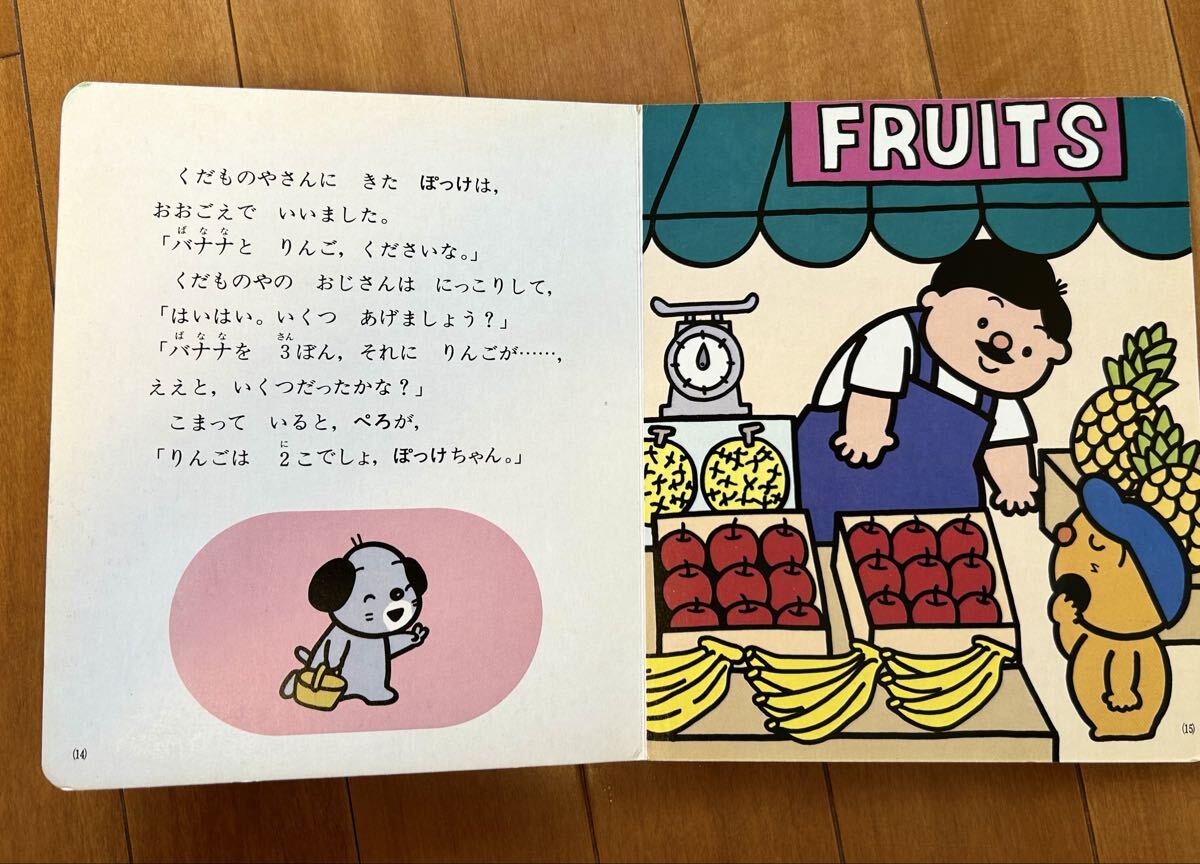 くだものやさんに　きた　ぽっけは,
おおごえで　いいました。
「バナナと　りんご, くださいな。」
ばなな
くだものやの　おじさんは　にっこりして,
「はいはい。いくつ　あげましょう？」
「バナナを　3ぼん, それに　りんごが……,
ばなな　さん
ええと, いくつだったかな？」
こまって　いると, ぺろが,
「りんごは　2こでしょ, ぽっけちゃん。」
に
(14)
FRUITS
(15)